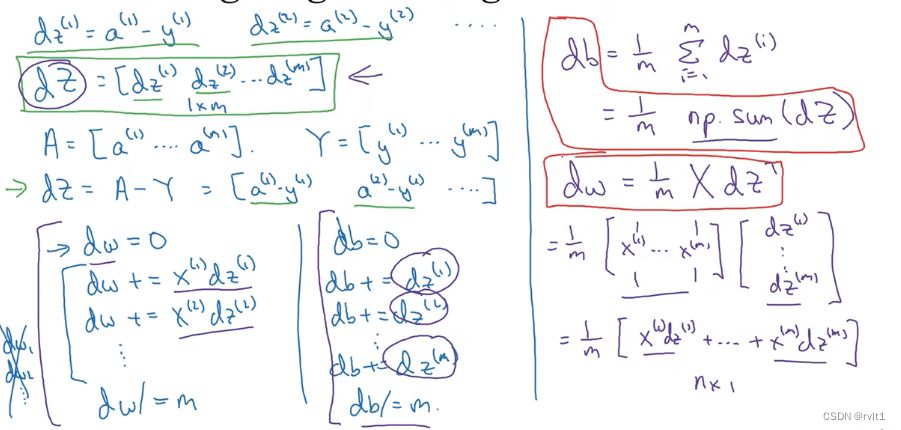 dz⁽¹⁾ = a⁽¹⁾ - y⁽¹⁾   dz⁽²⁾ = a⁽²⁾ - y⁽²⁾ ....
dZ = [dz⁽¹⁾ dz⁽²⁾ ... dz⁽ᵐ⁾] ←
1×m
A = [a⁽¹⁾ .... a⁽ᵐ⁾].   Y = [y⁽¹⁾ .... y⁽ᵐ⁾]
→ dZ = A - Y = [a⁽¹⁾-y⁽¹⁾   a⁽²⁾-y⁽²⁾ ....]
→ dw = 0
dw += x⁽¹⁾dz⁽¹⁾
dw += x⁽²⁾dz⁽²⁾
⋮
dw /= m
dw₁
dw₂
⋮
db = 0
db += dz⁽¹⁾
db += dz⁽²⁾
⋮
db += dz⁽ᵐ⁾
db /= m.
db = 1/m Σᵢ₌₁ᵐ dz⁽ⁱ⁾
= 1/m np.sum(dZ)
dw = 1/m X dzᵀ
= 1/m [x⁽¹⁾ ... x⁽ᵐ⁾] [dz⁽¹⁾ ⋮ dz⁽ᵐ⁾]
= 1/m [x⁽¹⁾dz⁽¹⁾ + ... + x⁽ᵐ⁾dz⁽ᵐ⁾]
n×1
CSDN @rvlt1